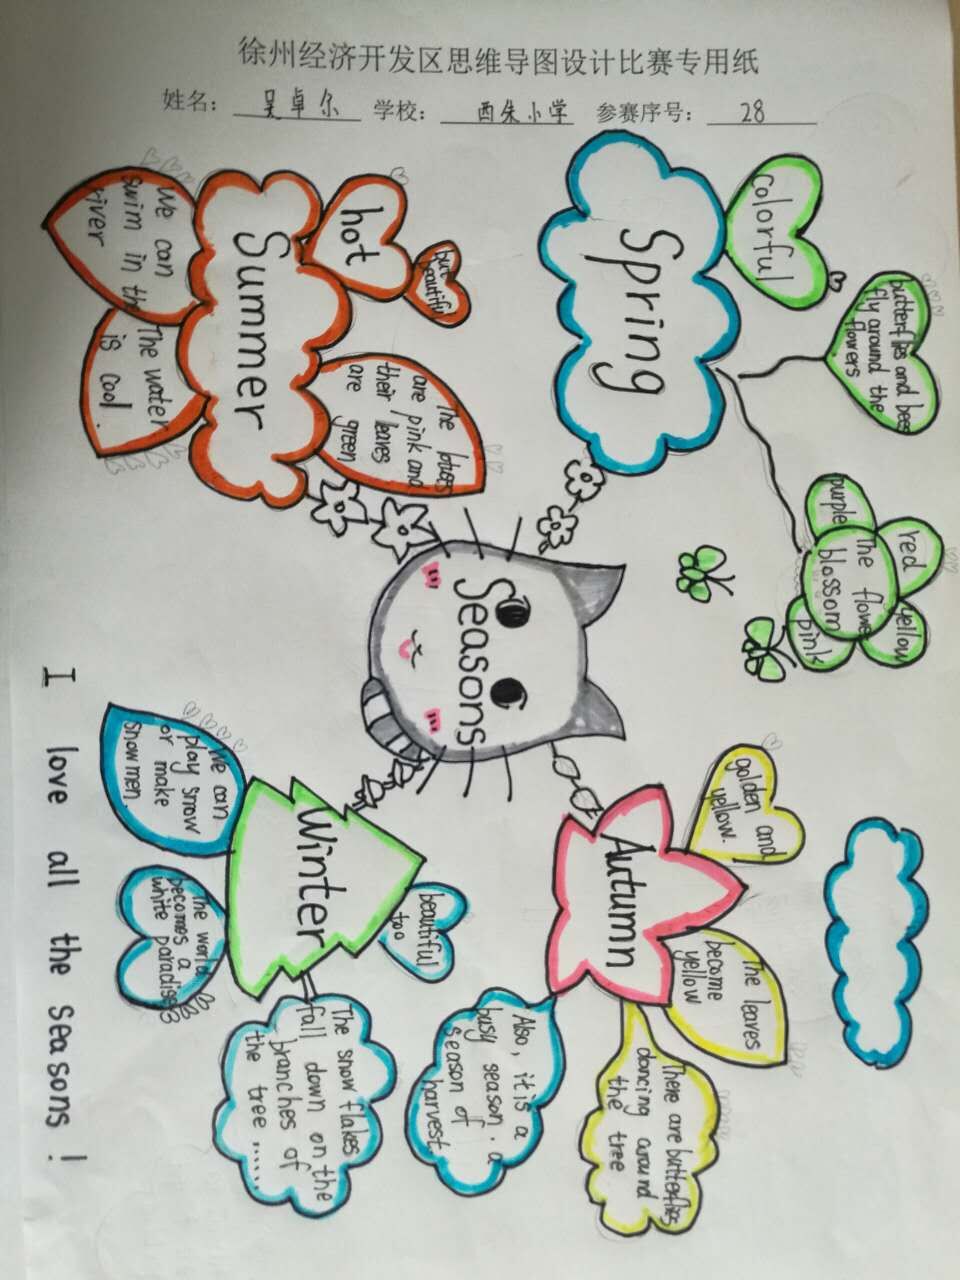 徐州经济开发区思维导图设计比赛专用纸
姓名： 吴卓尔 学校： 西朱小学 参赛序号： 28
Seasons
Spring
colorful
butterflies and bees
fly around the
flowers
The flower
blossom
purple
red
yellow
pink
Summer
hot
but
beautiful
are pink and
their leaves
are green
We can
swim in th
river
The water
is cool.
Autumn
golden and
yellow.
The leaves
become
yellow
There are butterflies
dancing around
the tree
Also, it is a
busy season. a
season of
harvest
Winter
beautiful
too
We can
play snow
or make
snowmen.
The world
becomes a
white paradise
The snow flakes
fall down on the
branches of
the tree......
I love all the seasons!